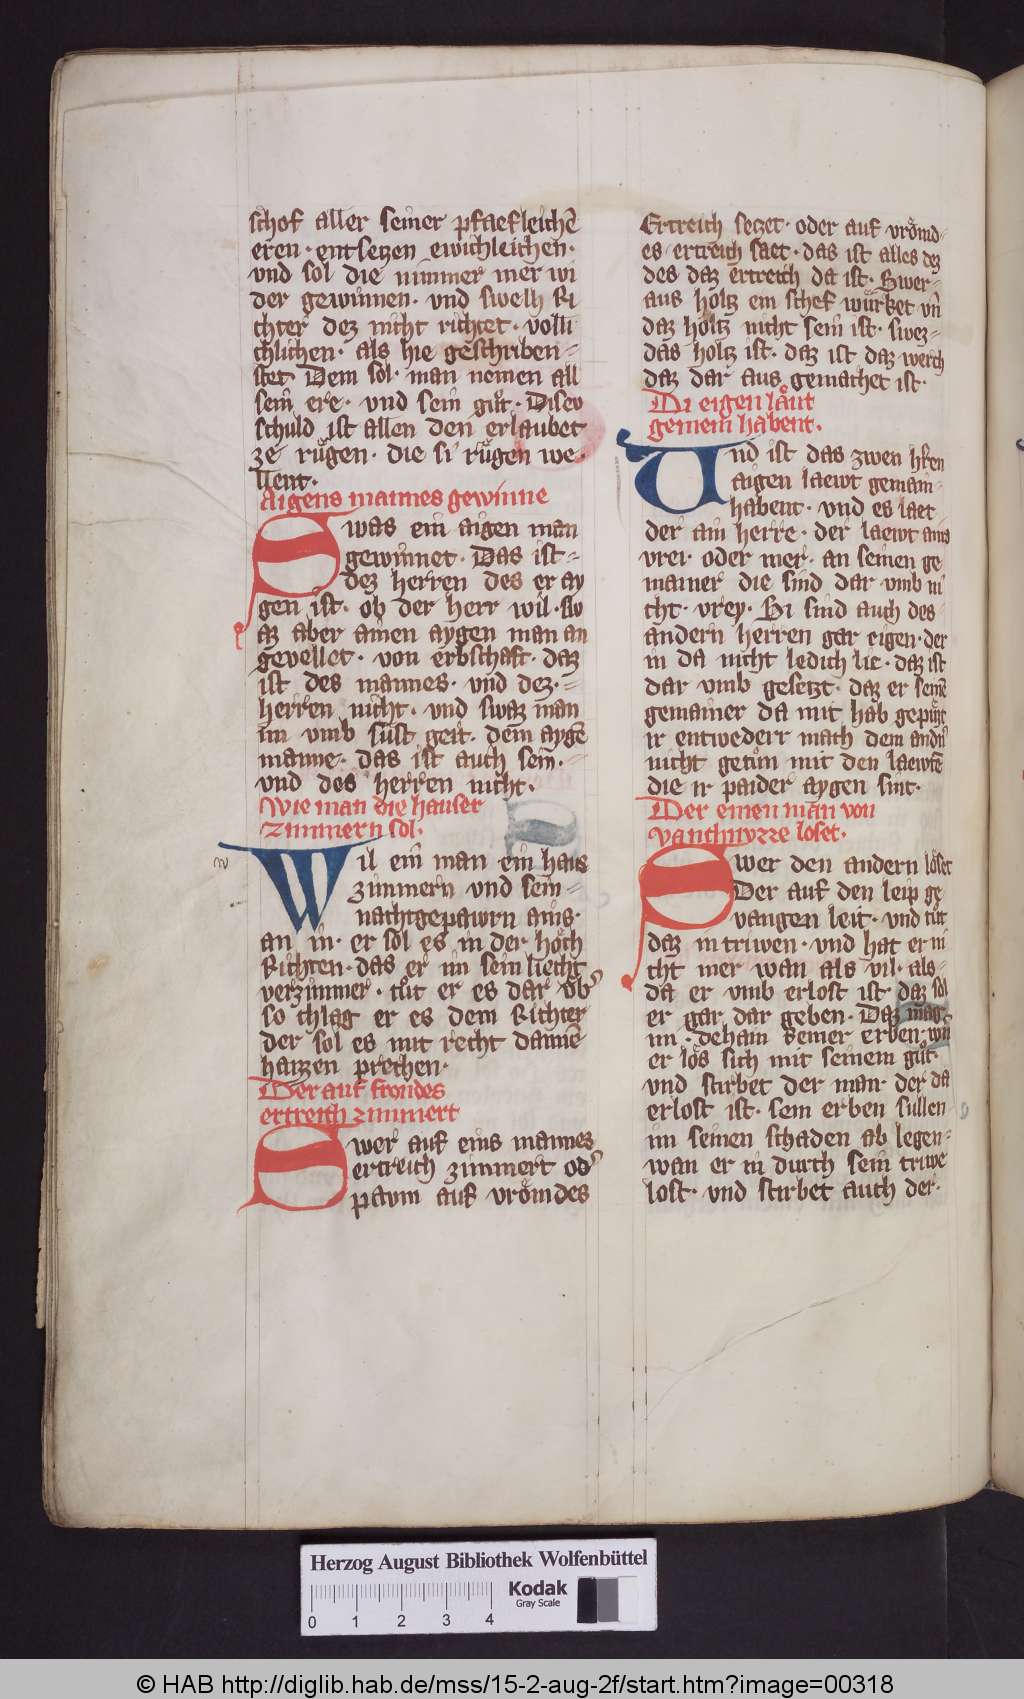 schof aller seiner pfaefleichē
eren · entsetzen ewichleichen ·
vnd sol die nimmer mer wi
der gewinnen · vnd swelh Ri
chter dez nicht richtet · volli
chlichen · als hie geschriben
stet · Dem sol · man nemen all
sein ere · vnd sein gůt · Disev
schuld ist allen den erlaubet
ze růgen · die si růgen we
llent ·
Aigens mannes gewinne
Swas ein aigen man
gewinnet · Das ist
dez herren des er ay
gen ist · ob der herr wil · sw
az aber ainen aygen man an
gevellet · von erbschaft · daz
ist des mannes · vnd dez ·
herren nicht · vnd swaz man
im vmb sust geit · dem aygē
manne · das ist auch sein ·
vnd des herren nicht ·
Wie man die hauser
zimmern sol ·
w
Wil ein man ein haus
zimmern vnd sein
nachtgepawrn ains ·
an in · er sol es in der hoch
Richten · das er im sein liecht
verzimmer · tůt er es dar vb
so chlag er es dem Richter
der sol es mit recht dannē
haizzen prechen ·
Der auf fromdes
ertreich zimmert
Swer auf eins mannes
ertreich zimmert od
pawm auf vrömdes
Ertreich setzet · oder auf vrömd
es ertreich saet · das ist alles dez
des daz ertreich da ist · Swer
aus holtz ein schef wurket vn̄
daz holtz nicht sein ist · swez
das holtz ist · daz ist daz werch
daz dar aus gemachet ist ·
Di eigen låut
gemein habent ·
Und ist das zwen hren
aigen laewt gemain
habent · vnd es laet
der ain herre · der laewt ains
vrei · oder mer · an seinen ge
mainer die sind dar vmb ni
cht · vrey · Si sind auch des
andern herren gar eigen · der
in da nicht ledich lie · daz ist
dar vmb gesetzt · daz er seinē
gemainer da mit hab gepuzt
ir entwederr mach dem andn
nicht getůn mit den laewtē
die ir paider aygen sint ·
Der einen man von
vanchnyzze loset ·
Swer den andern löset
Der auf den leip ge
vangen leit · vnd tůt
daz in triwen · vnd hat er ni
cht mer wan als vil · als
da er vmb erlost ist daz sol
er gar dar geben · Daz mag
im · dehain seiner erben · wn̄
er lös sich mit seinem gůt ·
vnd stirbet der man · der da
erlost ist · sein erben sullen
im seinen schaden ab legen
wan er in durch sein triwe
lost · vnd stirbet auch der ·
Herzog August Bibliothek Wolfenbüttel
0 1 2 3 4
Kodak
Gray Scale
© HAB http://diglib.hab.de/mss/15-2-aug-2f/start.htm?image=00318